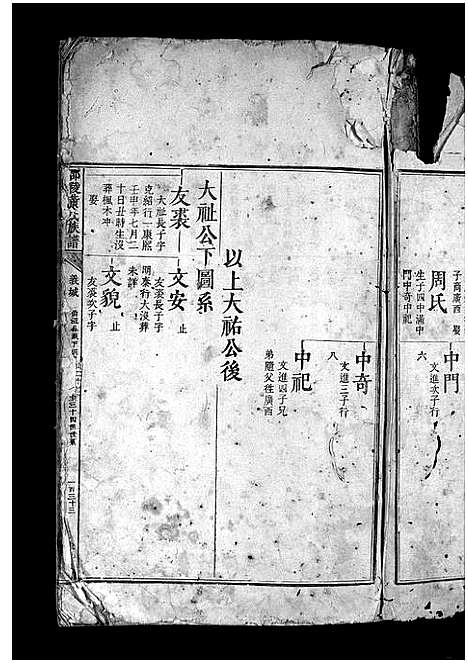 中門
文進次子行
六
子商廣西 娶
周氏
生子四中滿中
門中奇中祀
中奇
文進三子行
八
中祀
文進四子兄
弟隨父往廣西
以上大祐公後
大祉公下圖系
友裘
大祉長子字
克紹行一康熙
壬申年七月二
十日丑時生沒
葬楓木冲
娶
文安 止
友裘長子字
明泰行大沒葬
未詳
文貌 止
友裘次子字
邵陵黃氏族譜
義城
一百三十三